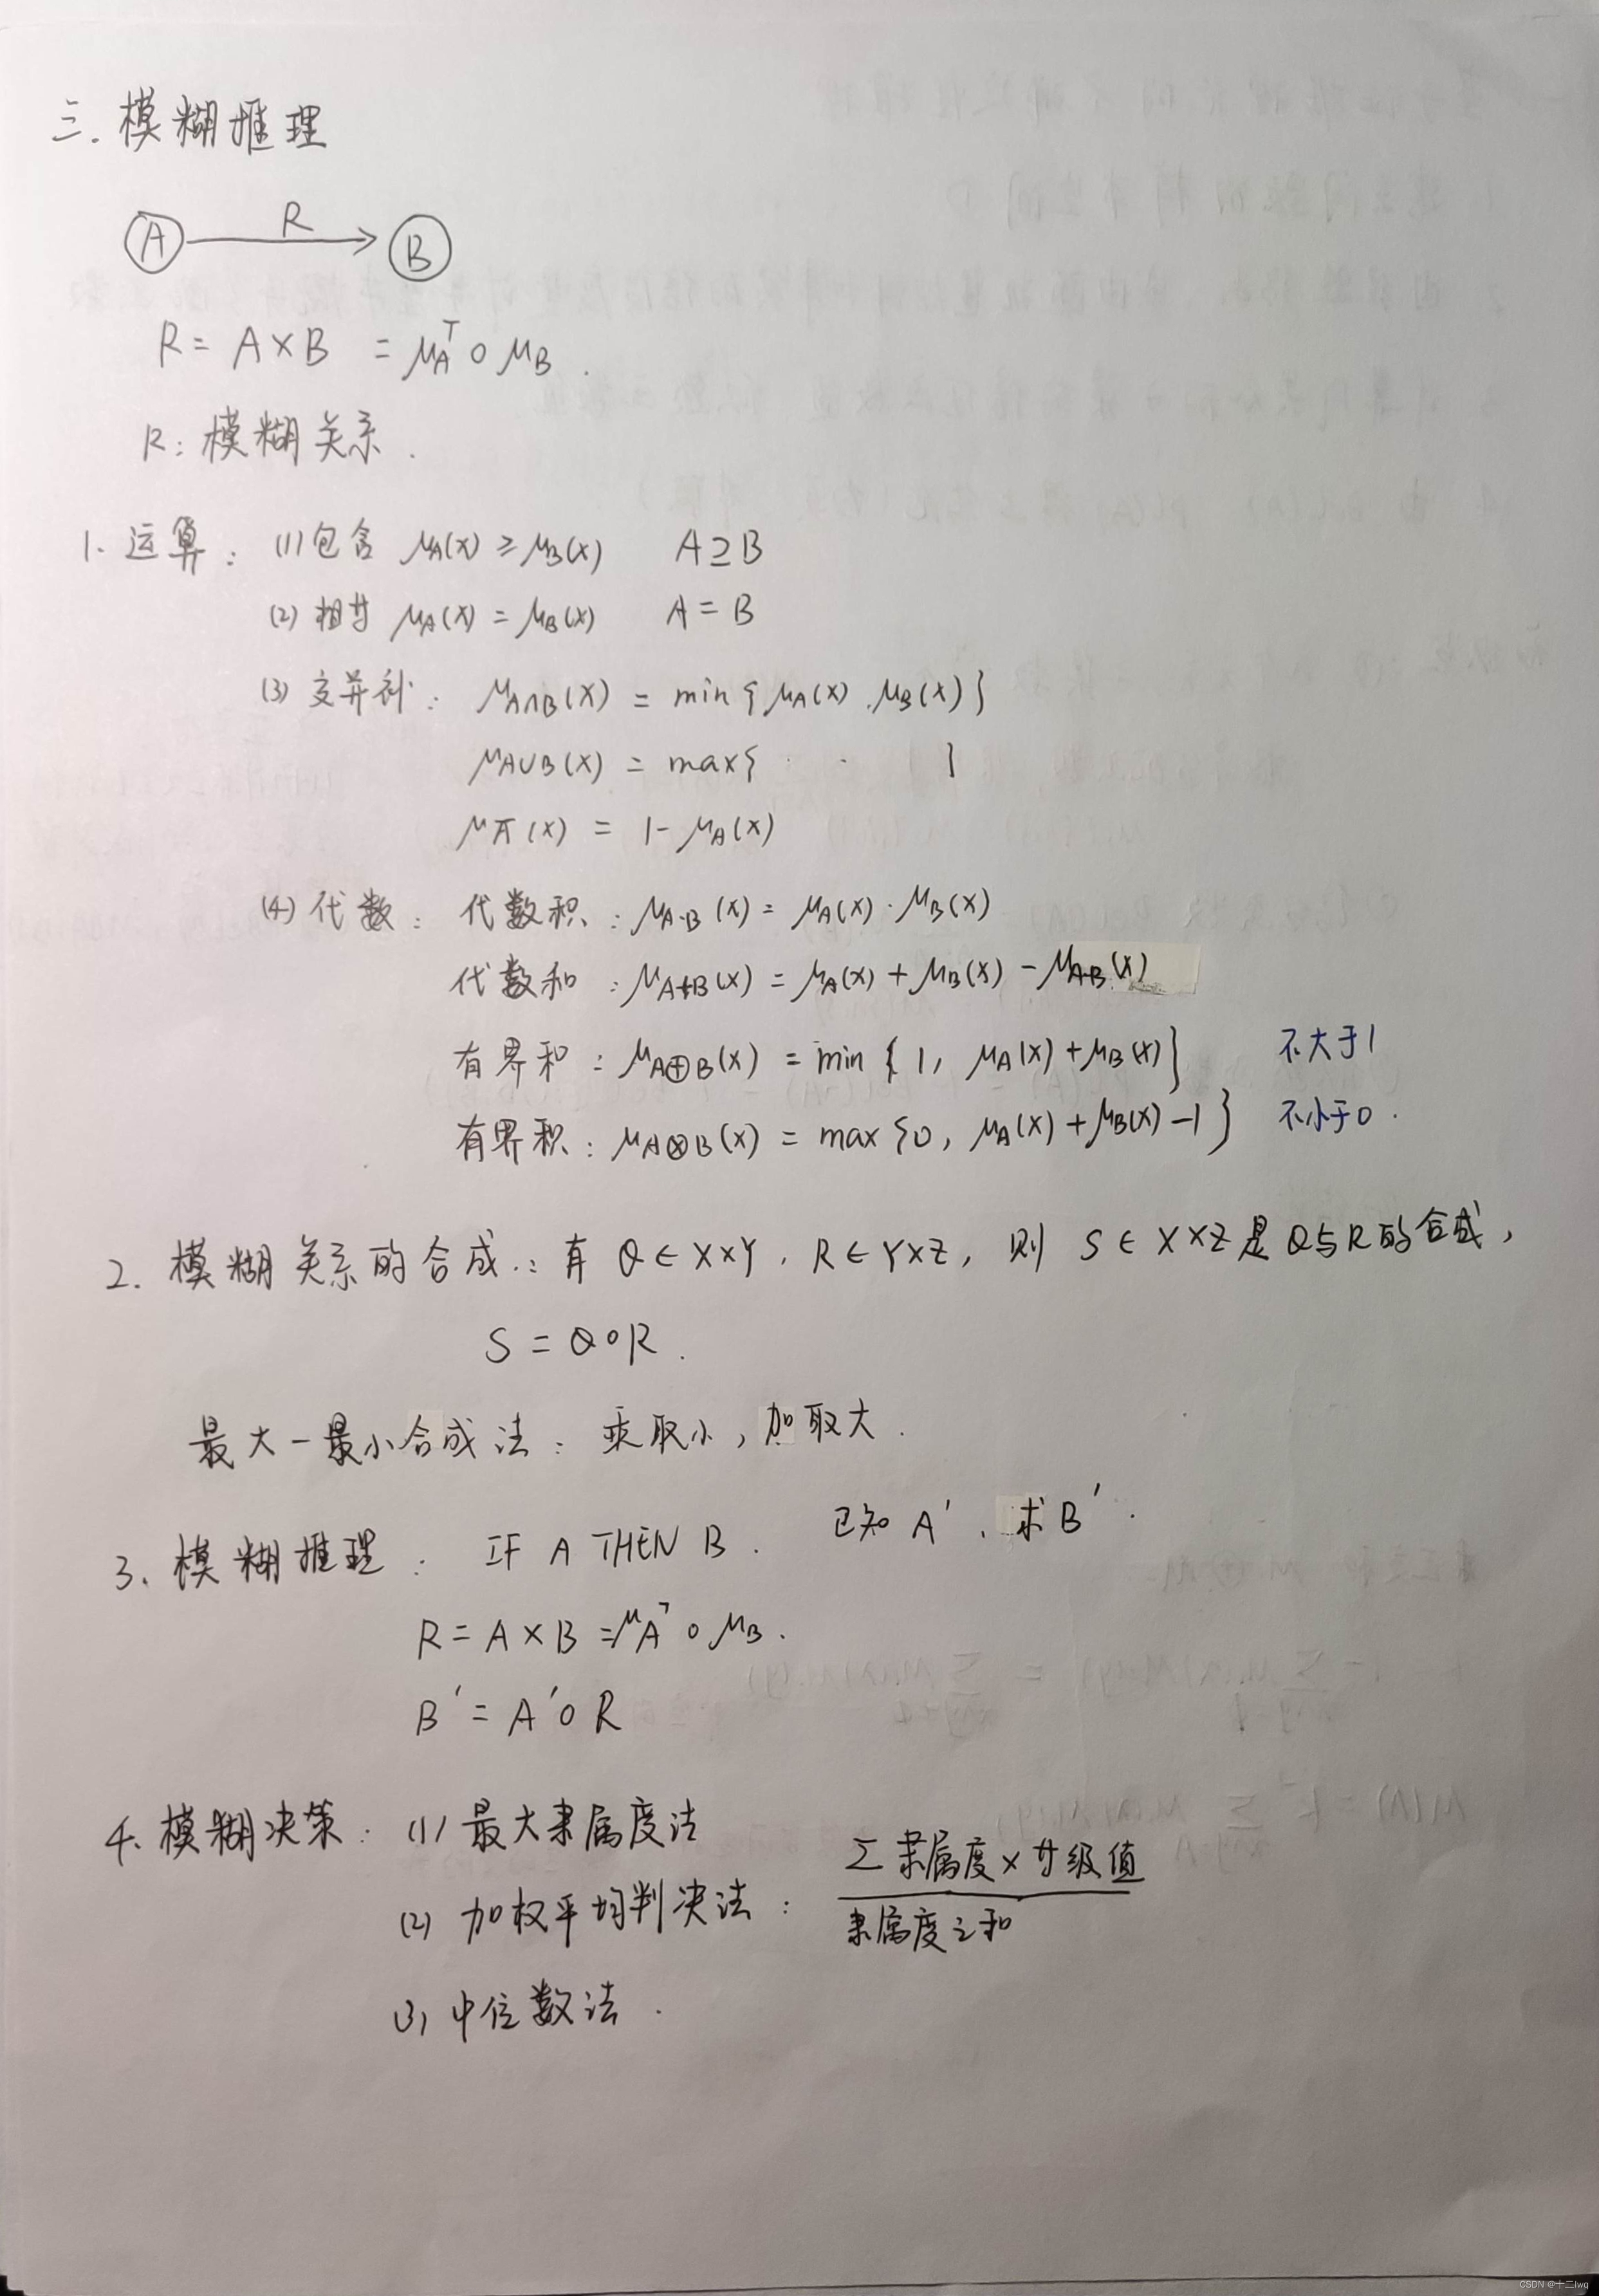 三. 模糊推理
A R B
R = A × B = μAᵀ ∘ μB .
R: 模糊关系 .
1. 运算: (1) 包含 μA(x) ≥ μB(x) A ⊇ B
(2) 相等 μA(x) = μB(x) A = B
(3) 交并补: μA∩B(x) = min{μA(x), μB(x)}
μA∪B(x) = max{ · · }
μĀ(x) = 1 - μA(x)
(4) 代数: 代数积: μA·B(x) = μA(x) · μB(x)
代数和: μA+B(x) = μA(x) + μB(x) - μA·B(x)
有界和: μA⊕B(x) = min{1, μA(x) + μB(x)} 不大于1
有界积: μA⊗B(x) = max{0, μA(x) + μB(x) - 1} 不小于0 .
2. 模糊关系的合成: 有 Q ∈ X×Y, R ∈ Y×Z, 则 S ∈ X×Z 是 Q 与 R 的合成,
S = Q∘R .
最大-最小合成法: 乘取小, 加取大 .
3. 模糊推理: IF A THEN B . 已知 A′, 求 B′ .
R = A × B = μAᵀ ∘ μB .
B′ = A′ ∘ R
4. 模糊决策: (1) 最大隶属度法
(2) 加权平均判决法: Σ 隶属度 × 等级值
隶属度之和
(3) 中位数法 .
CSDN @十二lwq